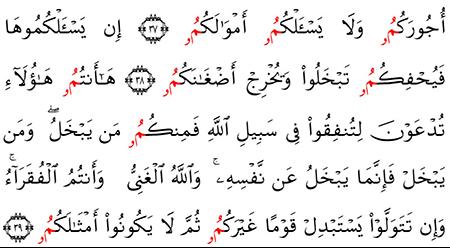 أُجُورَكُمُۥ وَلَا يَسْـَٔلْكُمُۥ أَمْوَٰلَكُمُۥ ۝٣٧ إِن يَسْـَٔلْكُمُوهَا
فَيُحْفِكُمُۥ تَبْخَلُوا۟ وَيُخْرِجْ أَضْغَٰنَكُمُۥ ۝٣٨ هَـٰٓأَنتُمُۥ هَـٰٓؤُلَآءِ
تُدْعَوْنَ لِتُنفِقُوا۟ فِى سَبِيلِ ٱللَّهِ فَمِنكُمُۥ مَن يَبْخَلُ ۖ وَمَن
يَبْخَلْ فَإِنَّمَا يَبْخَلُ عَن نَّفْسِهِۦ ۚ وَٱللَّهُ ٱلْغَنِىُّ وَأَنتُمُ ٱلْفُقَرَآءُ ۚ
وَإِن تَتَوَلَّوْا۟ يَسْتَبْدِلْ قَوْمًا غَيْرَكُمُۥ ثُمَّ لَا يَكُونُوٓا۟ أَمْثَٰلَكُمُۥ ۝٣٩